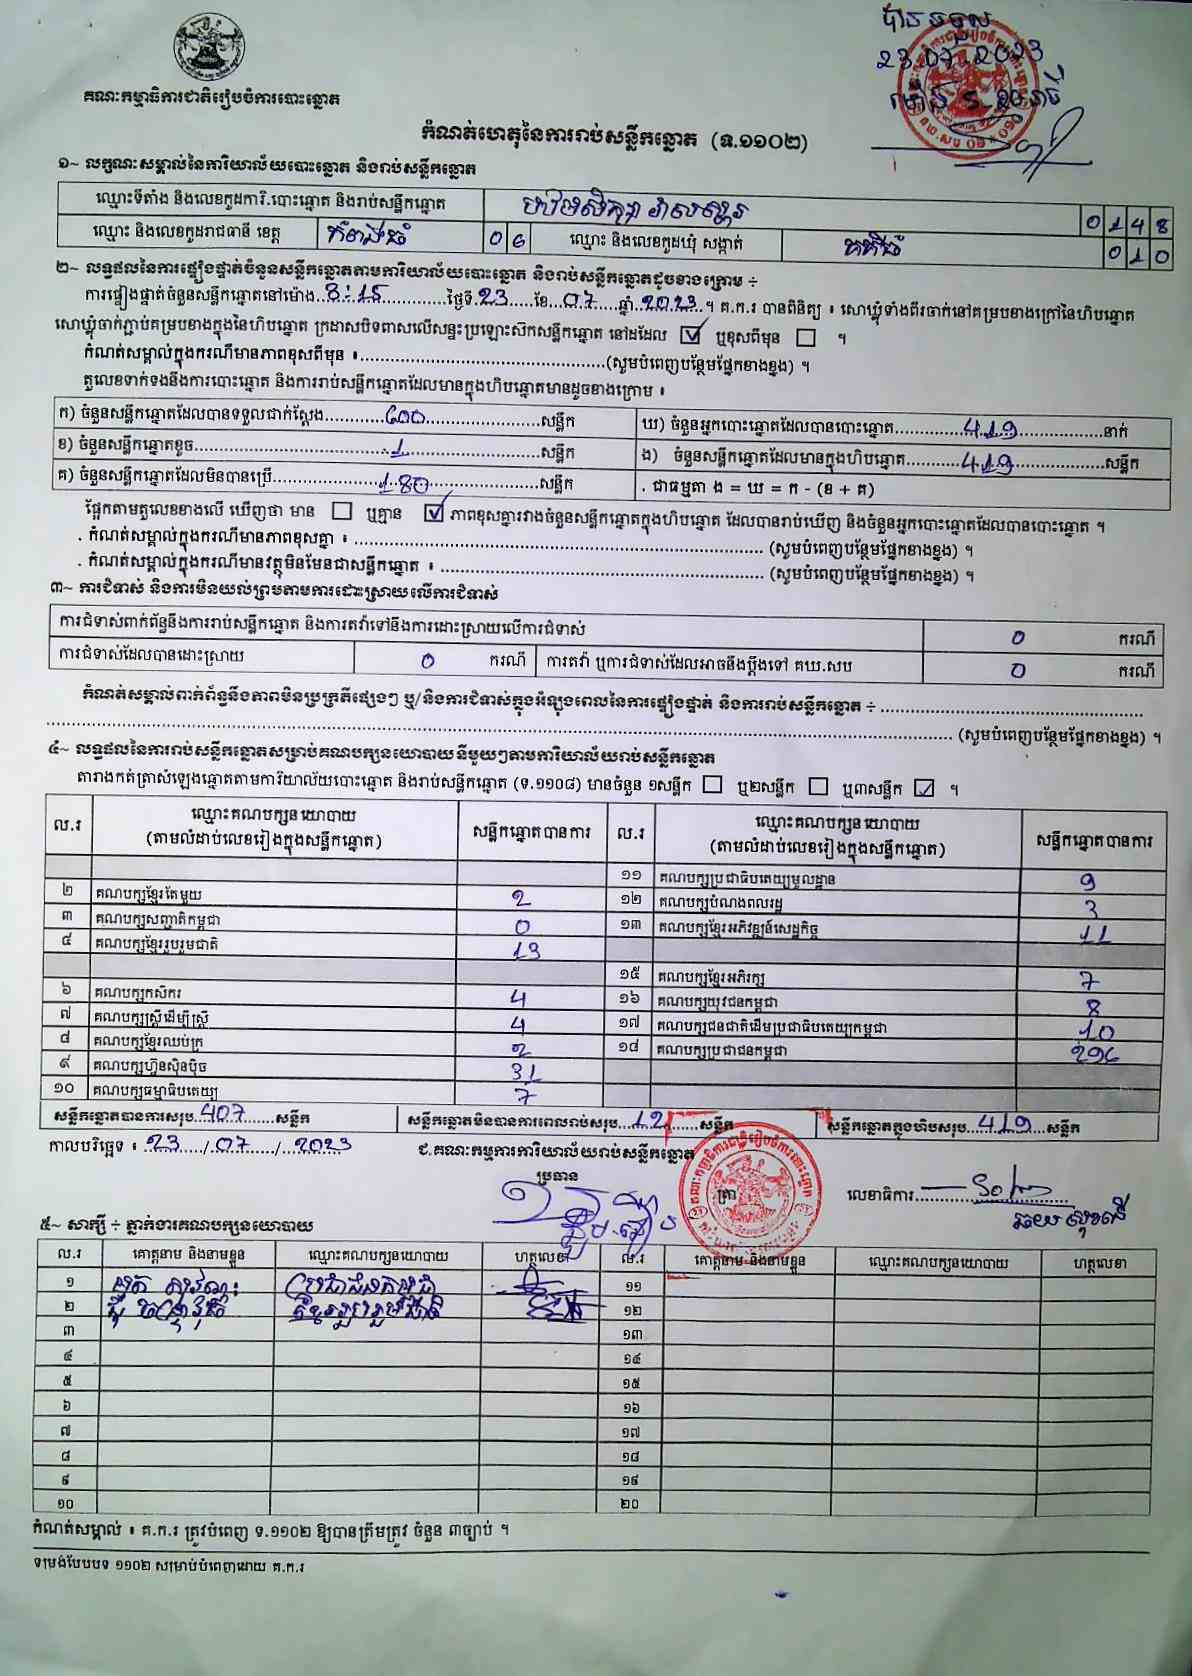 បានទទួល
23.07.2023
ម៉ោង 5 20 នាទី
គណៈកម្មាធិការជាតិរៀបចំការបោះឆ្នោត
កំណត់ហេតុនៃការរាប់សន្លឹកឆ្នោត (ទ.១១០២)
១~ លក្ខណៈសម្គាល់នៃការិយាល័យបោះឆ្នោត និងរាប់សន្លឹកឆ្នោត
ឈ្មោះទីតាំង និងលេខកូដការិ.បោះឆ្នោត និងរាប់សន្លឹកឆ្នោត 0148
ឈ្មោះ និងលេខកូដរាជធានី ខេត្ត កំពង់ធំ 06 ឈ្មោះ និងលេខកូដឃុំ សង្កាត់ គគីធំ 010
២~ លទ្ធផលនៃការផ្ទៀងផ្ទាត់ចំនួនសន្លឹកឆ្នោតតាមការិយាល័យបោះឆ្នោត និងរាប់សន្លឹកឆ្នោតដូចខាងក្រោម ÷
ការផ្ទៀងផ្ទាត់ចំនួនសន្លឹកឆ្នោតនៅម៉ោង..8:15..ថ្ងៃទី.23..ខែ..07..ឆ្នាំ.2023.។ គ.ក.រ បានពិនិត្យ ៖ សោឃ្លុំទាំងពីរចាក់នៅគម្របខាងក្រៅនៃហិបឆ្នោត
សោឃ្លុំចាក់ភ្ជាប់គម្របខាងក្នុងនៃហិបឆ្នោត ក្រដាសបិទពាសលើសន្ទះប្រឡោះស៊កសន្លឹកឆ្នោត នៅដដែល ☑ ឬខុសពីមុន ☐ ។
កំណត់សម្គាល់ក្នុងករណីមានភាពខុសពីមុន ៖..........(សូមបំពេញបន្ថែមផ្នែកខាងខ្នង) ។
តួលេខទាក់ទងនឹងការបោះឆ្នោត និងការរាប់សន្លឹកឆ្នោតដែលមានក្នុងហិបឆ្នោតមានដូចខាងក្រោម ៖
ក) ចំនួនសន្លឹកឆ្នោតដែលបានទទួលជាក់ស្តែង.....600.....សន្លឹក ឃ) ចំនួនអ្នកបោះឆ្នោតដែលបានបោះឆ្នោត.....419.....នាក់
ខ) ចំនួនសន្លឹកឆ្នោតខូច.....1.....សន្លឹក ង) ចំនួនសន្លឹកឆ្នោតដែលមានក្នុងហិបឆ្នោត.....419.....សន្លឹក
គ) ចំនួនសន្លឹកឆ្នោតដែលមិនបានប្រើ.....180.....សន្លឹក . ជាធម្មតា ង = ឃ = ក - (ខ + គ)
ផ្អែកតាមតួលេខខាងលើ ឃើញថា មាន ☐ ឬគ្មាន ☑ ភាពខុសគ្នារវាងចំនួនសន្លឹកឆ្នោតក្នុងហិបឆ្នោត ដែលបានរាប់ឃើញ និងចំនួនអ្នកបោះឆ្នោតដែលបានបោះឆ្នោត ។
. កំណត់សម្គាល់ក្នុងករណីមានភាពខុសគ្នា ៖ .......... (សូមបំពេញបន្ថែមផ្នែកខាងខ្នង) ។
. កំណត់សម្គាល់ក្នុងករណីមានវត្ថុមិនមែនជាសន្លឹកឆ្នោត ៖ .......... (សូមបំពេញបន្ថែមផ្នែកខាងខ្នង) ។
៣~ ការជំទាស់ និងការមិនយល់ព្រមតាមការដោះស្រាយលើការជំទាស់
ការជំទាស់ពាក់ព័ន្ធនឹងការរាប់សន្លឹកឆ្នោត និងការតវ៉ាទៅនឹងការដោះស្រាយលើការជំទាស់ 0 ករណី
ការជំទាស់ដែលបានដោះស្រាយ 0 ករណី ការតវ៉ា ឬការជំទាស់ដែលអាចនឹងប្តឹងទៅ គឃ.សប 0 ករណី
កំណត់សម្គាល់ពាក់ព័ន្ធនឹងភាពមិនប្រក្រតីផ្សេងៗ ឬ/និងការជំទាស់ក្នុងអំឡុងពេលនៃការផ្ទៀងផ្ទាត់ និងការរាប់សន្លឹកឆ្នោត ÷ ..........
.......... (សូមបំពេញបន្ថែមផ្នែកខាងខ្នង) ។
៤~ លទ្ធផលនៃការរាប់សន្លឹកឆ្នោតសម្រាប់គណបក្សនយោបាយនីមួយៗតាមការិយាល័យរាប់សន្លឹកឆ្នោត
តារាងកត់ត្រាសំឡេងឆ្នោតតាមការិយាល័យបោះឆ្នោត និងរាប់សន្លឹកឆ្នោត (ទ.១១០៨) មានចំនួន ១សន្លឹក ☐ ឬ២សន្លឹក ☐ ឬ៣សន្លឹក ☑ ។
ល.រ ឈ្មោះគណបក្សនយោបាយ (តាមលំដាប់លេខរៀងក្នុងសន្លឹកឆ្នោត) សន្លឹកឆ្នោតបានការ ល.រ ឈ្មោះគណបក្សនយោបាយ (តាមលំដាប់លេខរៀងក្នុងសន្លឹកឆ្នោត) សន្លឹកឆ្នោតបានការ
១១ គណបក្សប្រជាធិបតេយ្យមូលដ្ឋាន 9
២ គណបក្សខ្មែរតែមួយ 2 ១២ គណបក្សបំណងពលរដ្ឋ 3
៣ គណបក្សសញ្ជាតិកម្ពុជា 0 ១៣ គណបក្សខ្មែរអភិវឌ្ឍន៍សេដ្ឋកិច្ច 11
៤ គណបក្សខ្មែររួបរួមជាតិ 13
១៥ គណបក្សខ្មែរអភិរក្ស 7
៦ គណបក្សកសិករ 4 ១៦ គណបក្សយុវជនកម្ពុជា 8
៧ គណបក្សស្ត្រីដើម្បីស្ត្រី 4 ១៧ គណបក្សជនជាតិដើមប្រជាធិបតេយ្យកម្ពុជា 10
៨ គណបក្សខ្មែរឈប់ក្រ 2 ១៨ គណបក្សប្រជាជនកម្ពុជា 296
៩ គណបក្សហ៊្វុនស៊ិនប៉ិច 31
១០ គណបក្សធម្មាធិបតេយ្យ 7
សន្លឹកឆ្នោតបានការសរុប.407.....សន្លឹក សន្លឹកឆ្នោតមិនបានការពេលរាប់សរុប...12.....សន្លឹក សន្លឹកឆ្នោតក្នុងហិបសរុប..419...សន្លឹក
កាលបរិច្ឆេទ ៖ 23 / 07 / 2023 ជ.គណៈកម្មការការិយាល័យរាប់សន្លឹកឆ្នោត
ប្រធាន ត្រា លេខាធិការ
៥~ សាក្សី ÷ ភ្នាក់ងារគណបក្សនយោបាយ
ល.រ គោត្តនាម និងនាមខ្លួន ឈ្មោះគណបក្សនយោបាយ ហត្ថលេខា ល.រ គោត្តនាម និងនាមខ្លួន ឈ្មោះគណបក្សនយោបាយ ហត្ថលេខា
១ ប្រជាជនកម្ពុជា ១១
២ ខ្មែររួបរួមជាតិ ១២
៣ ១៣
៤ ១៤
៥ ១៥
៦ ១៦
៧ ១៧
៨ ១៨
៩ ១៩
១០ ២០
កំណត់សម្គាល់ ៖ គ.ក.រ ត្រូវបំពេញ ទ.១១០២ ឱ្យបានត្រឹមត្រូវ ចំនួន ៣ច្បាប់ ។
ទម្រង់បែបបទ ១១០២ សម្រាប់បំពេញដោយ គ.ក.រ